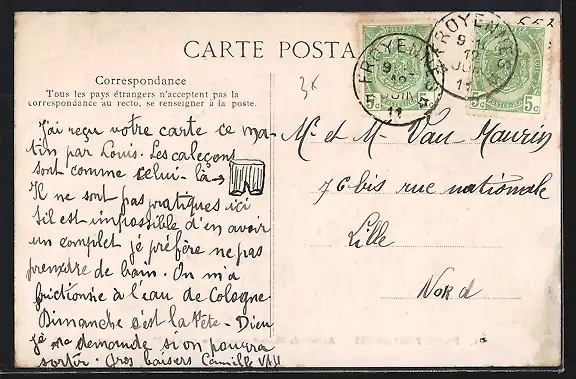 CARTE POSTA
Correspondance
Tous les pays étrangers n'acceptent pas la
correspondance au recto, se renseigner à la poste.
J'ai reçu votre carte ce ma-
tin par Louis. Les caleçons
sont comme celui-là →
Il ne sont pas pratiques ici
s'il est impossible d'en avoir
un complet je préfère ne pas
prendre de bain. On m'a
frictionnée à l'eau de Cologne
Dimanche c'est la fête - Dieu
je me demande si on pourra
sortir. Gros baisers Camille VAH
3x
FROYENNES
9
12
JUIN
11
5c 5c
FROYENNES
9
12
JUIN
11
5c 5c
Mr et M Van-Maurin
76 bis rue nationale
Lille
Nord